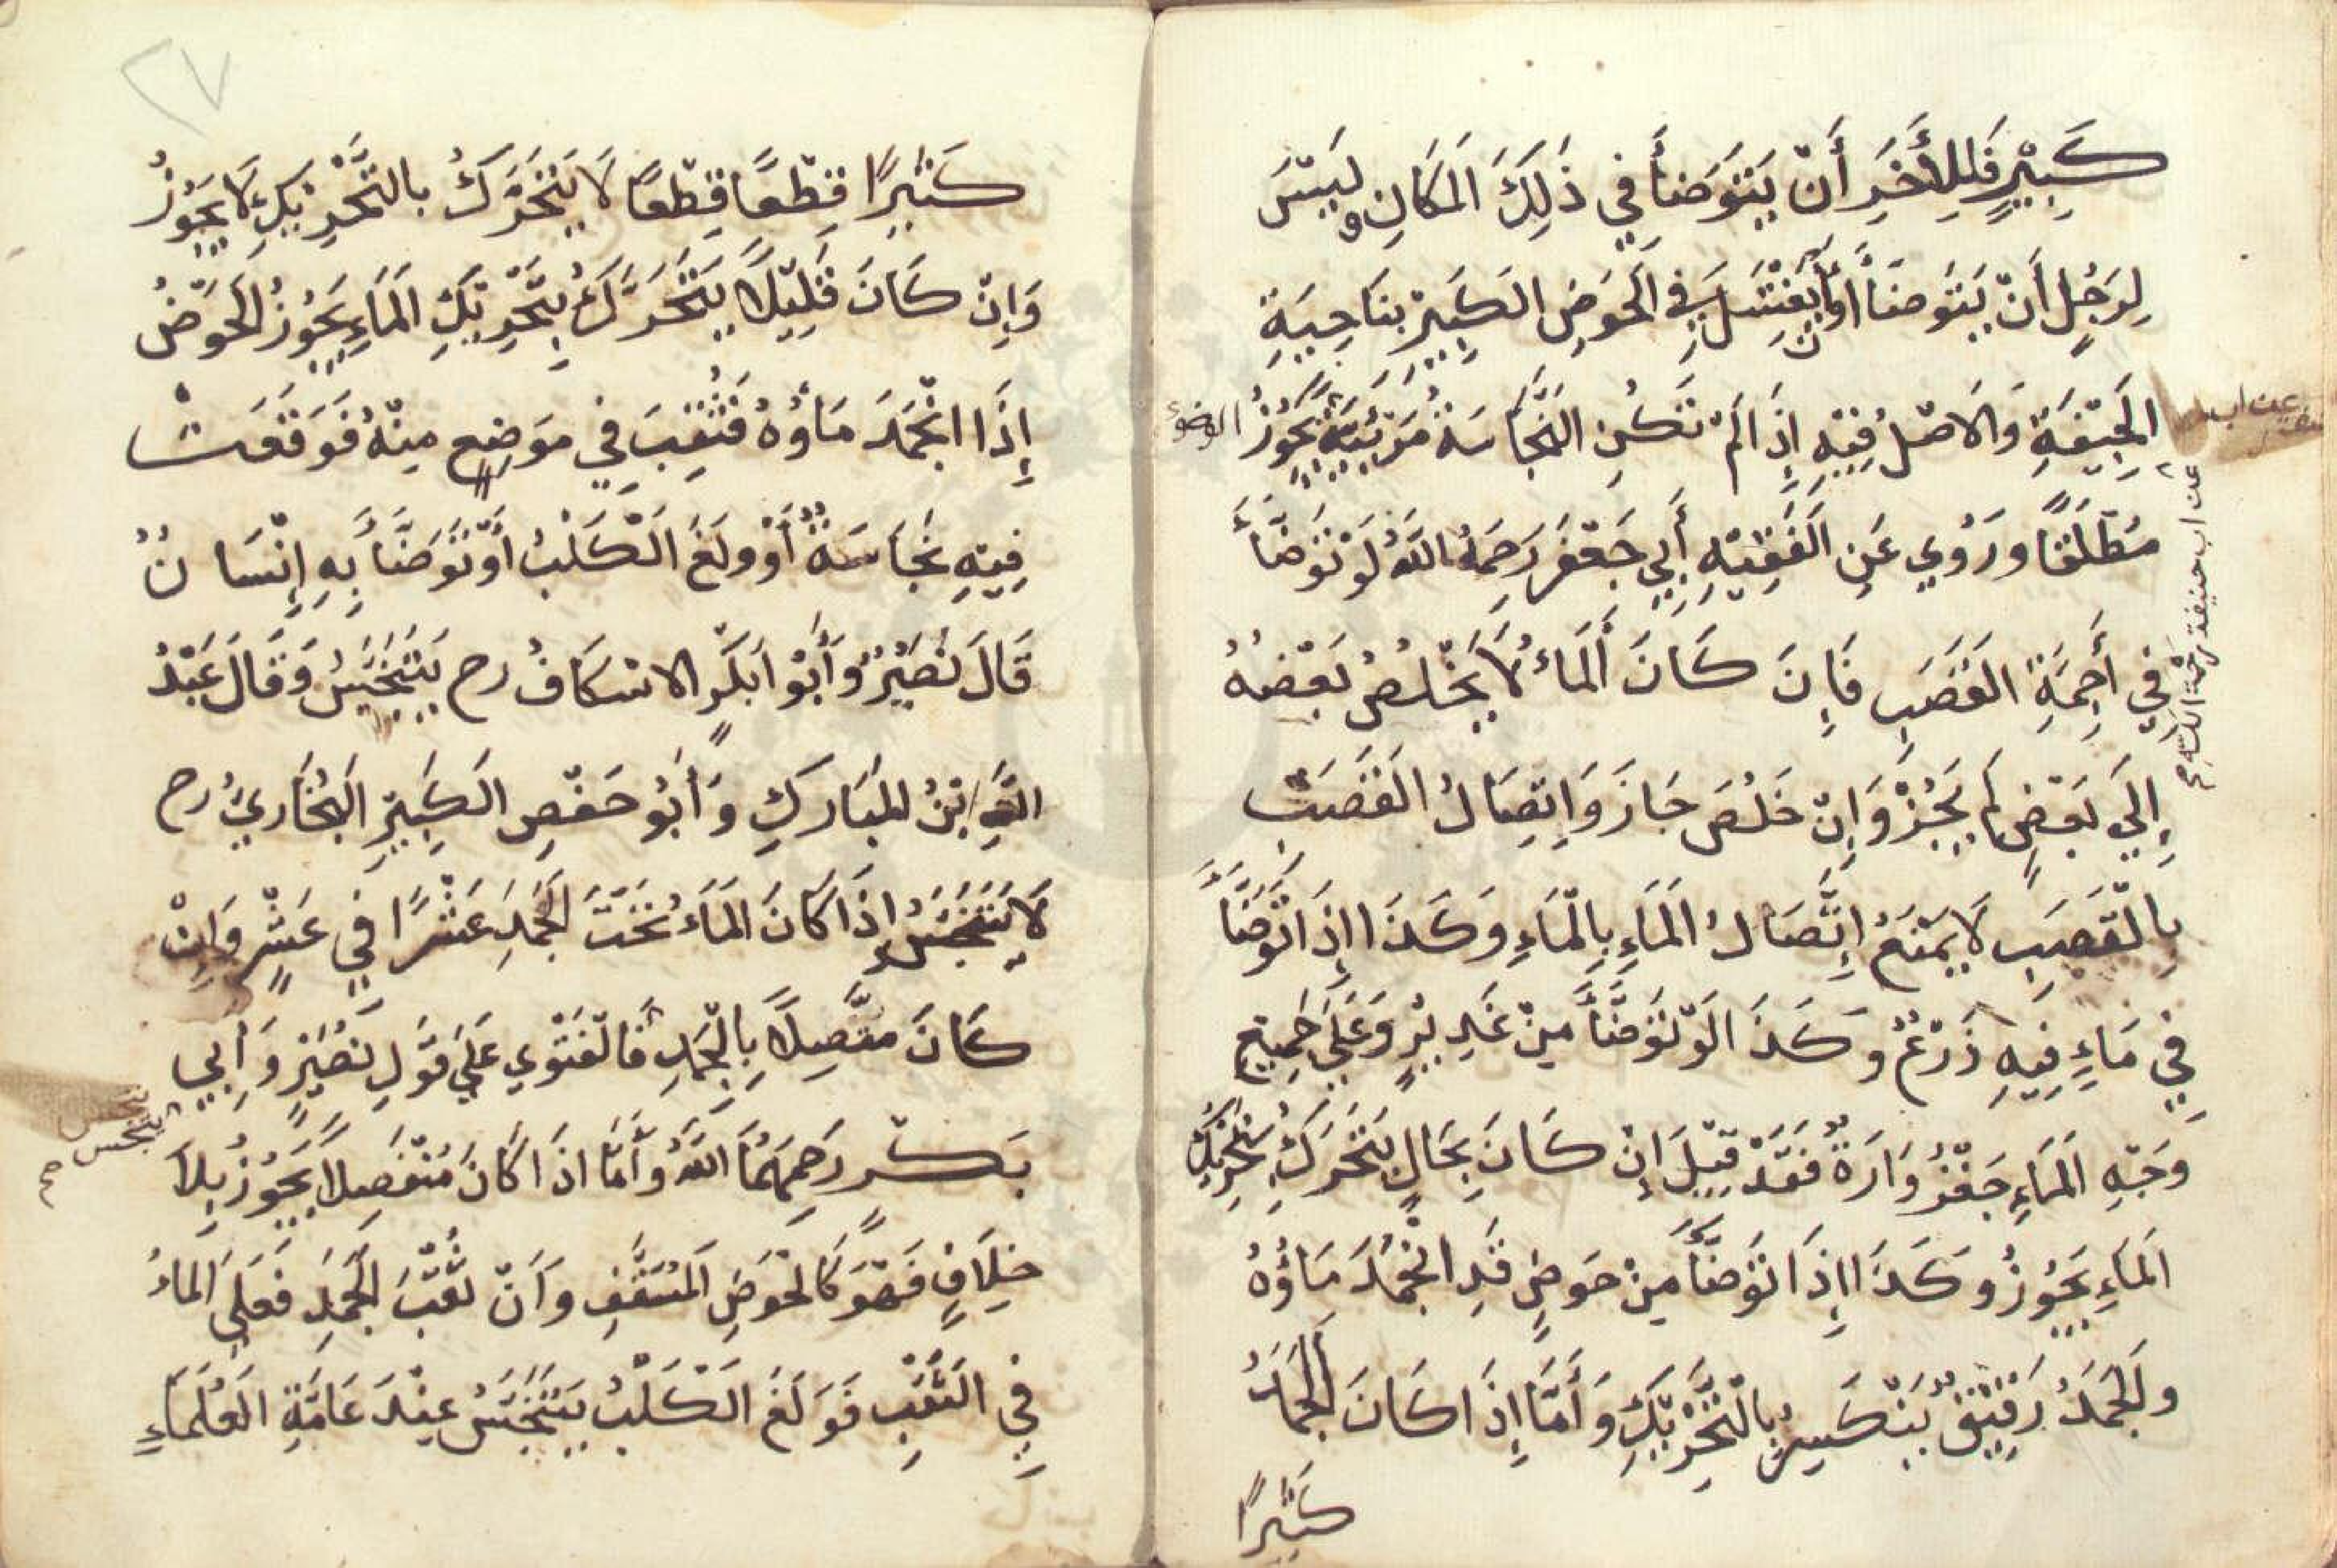 كَبِيْرٍ فَلِلْأَخَرِ أَنْ يَتَوَضَأَ فِي ذَلِكَ المَكَانِ وليس
لِرَجُلٍ أَنْ يَتَوَضَأَ أَوْ أن يَغْتَسِلَ فِي الحَوَضِ الكَبِيْرِ بنَاحِيَةِ
الجِيْفَةِ وَالَاصْلُ فِيْهِ إِذَا لَمْ تَكُنِ النَّجَاسَةُ مَرَئِيَّةً يَجُوْزُ الوضوء
مُطْلَقًا ورُوِي عَنِ الفَقِيْهِ أَبِي جَعْفَرَ رَحِمَهُ اللهُ لَوْ تَوَضَّأَ
فِي أَجِمَةِ القَصَبِ فَاِنَ كَانَ المَاءُ لَا يَخْلُصُ بَعْضُهُ
إِلَي بَعْضٍ لم يَجُزْ وَاِنْ خَلُصَ جَازَ وَاِتِصَالُ القَصَبْ
بِالْقَصَبِ لَا يَمْنَعُ اِتَّصَالُ المَاءِ بِالْمَاءِ وَكَذَا اِذَا تَوَضَّأَ
فِي مَاءٍ فِيْهِ زَرْعٌ وَكَذَا لَوْ تَوَضَّأَ مِنْ غَدِيْرٍ وَعَلَي جَمِيع
وَجْهِ المَاءِ جَغْزُوَارَةٌ فَقَدْ قِيْلَ اِنْ كَانَ بِحَالٍ يَتَحَرَكُ بتَحْرِيْكِ
المَاءِ يَجُوْزُ وَكَذَا اِذَا تَوَضَّأَ مِنْ حَوضٍ قَدِ انْجَمَدَ مَاؤُهُ
ولْجَمَدُ رَقِيْقٌ يَنْكَسِرُ بِالْتَّحْرِيْكِ وَأَمَّا إِذَا كَانَ الجَمَدُ
كَثِيْرًا
عن اب حنيفة رحمة الله
٢٧
كَثِيْرًا قِطْعًا قِطْعًا لَا يَتَحَرَّكُ بالتَّحْرِيْكِ لَا يَجُوْزُ
وَاِنْ كَانَ قَلِيْلًا يَتَحَرَّكُ بِتَحْرِيْكِ المَاءِ يَجُوْزُ الحَوْضُ
إِذَا انْجَمَدَ مَاؤُهُ فَثُقِبَ فِي مَوَضِعٍ مِنْهُ فَوَقَعَتْ
فِيْهِ نَجَاسَةٌ أَوْ ولَغَ الْكَلْبُ أَوْ تَوَضَّأَ بِهِ اِنْسَانٌ
قَالَ نُصَيْرُ وَأَبُوْ ابَكْرٍ الاسْكَافُ رح يَتَنَجَّسُ وَقَالَ عَبْدُ
اللهِ ابْنُ المُبَارَكِ وَأَبُو حَفْصِ الكَبِيْرِ البُخَارِيُّ رح
لَا يَتَنَجَّسُ اِذَا كَانَ المَاءُ تَحْتَ الجَمَدِ عَشْرًا فِي عَشْرٍ وَاِنْ
كَانَ مُتَّصِلًا بِالْجَمَدِ فَالْفَتْوِي عَلَي قَوْلِ نُصَيْرٍ وَأَبِي
بَكْرٍ رَحِمَهُمَا اللهُ وَأَمَّا اذَا كَانَ مُنْفَصِلًا يَجُوْزُ بِلَا
خِلَافٍ فَهُوَ كَالْحَوَضِ المُسَقَّفِ وَاَنْ ثُقْبَ الجَمَدَ فَعَلَي المَاءُ
فِي الثَقْبِ فَوَلَغَ الكَلْبُ يَتَنَجَّسُ عِنْدَ عَامَّةِ العُلَمَاءِ
يتنجس
صح